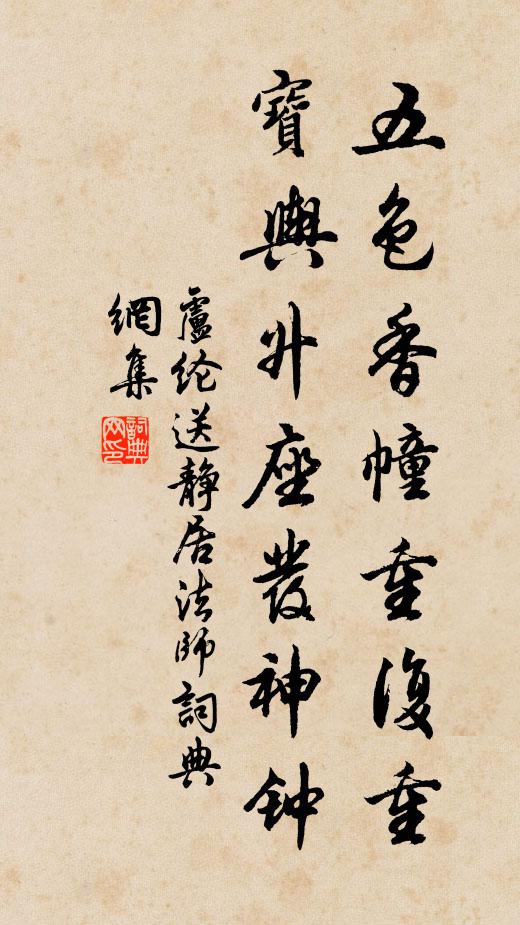 五色香幢重復重
寶輿升座發神钟
盧纶送静居法師詞典
網集
詞典
网印